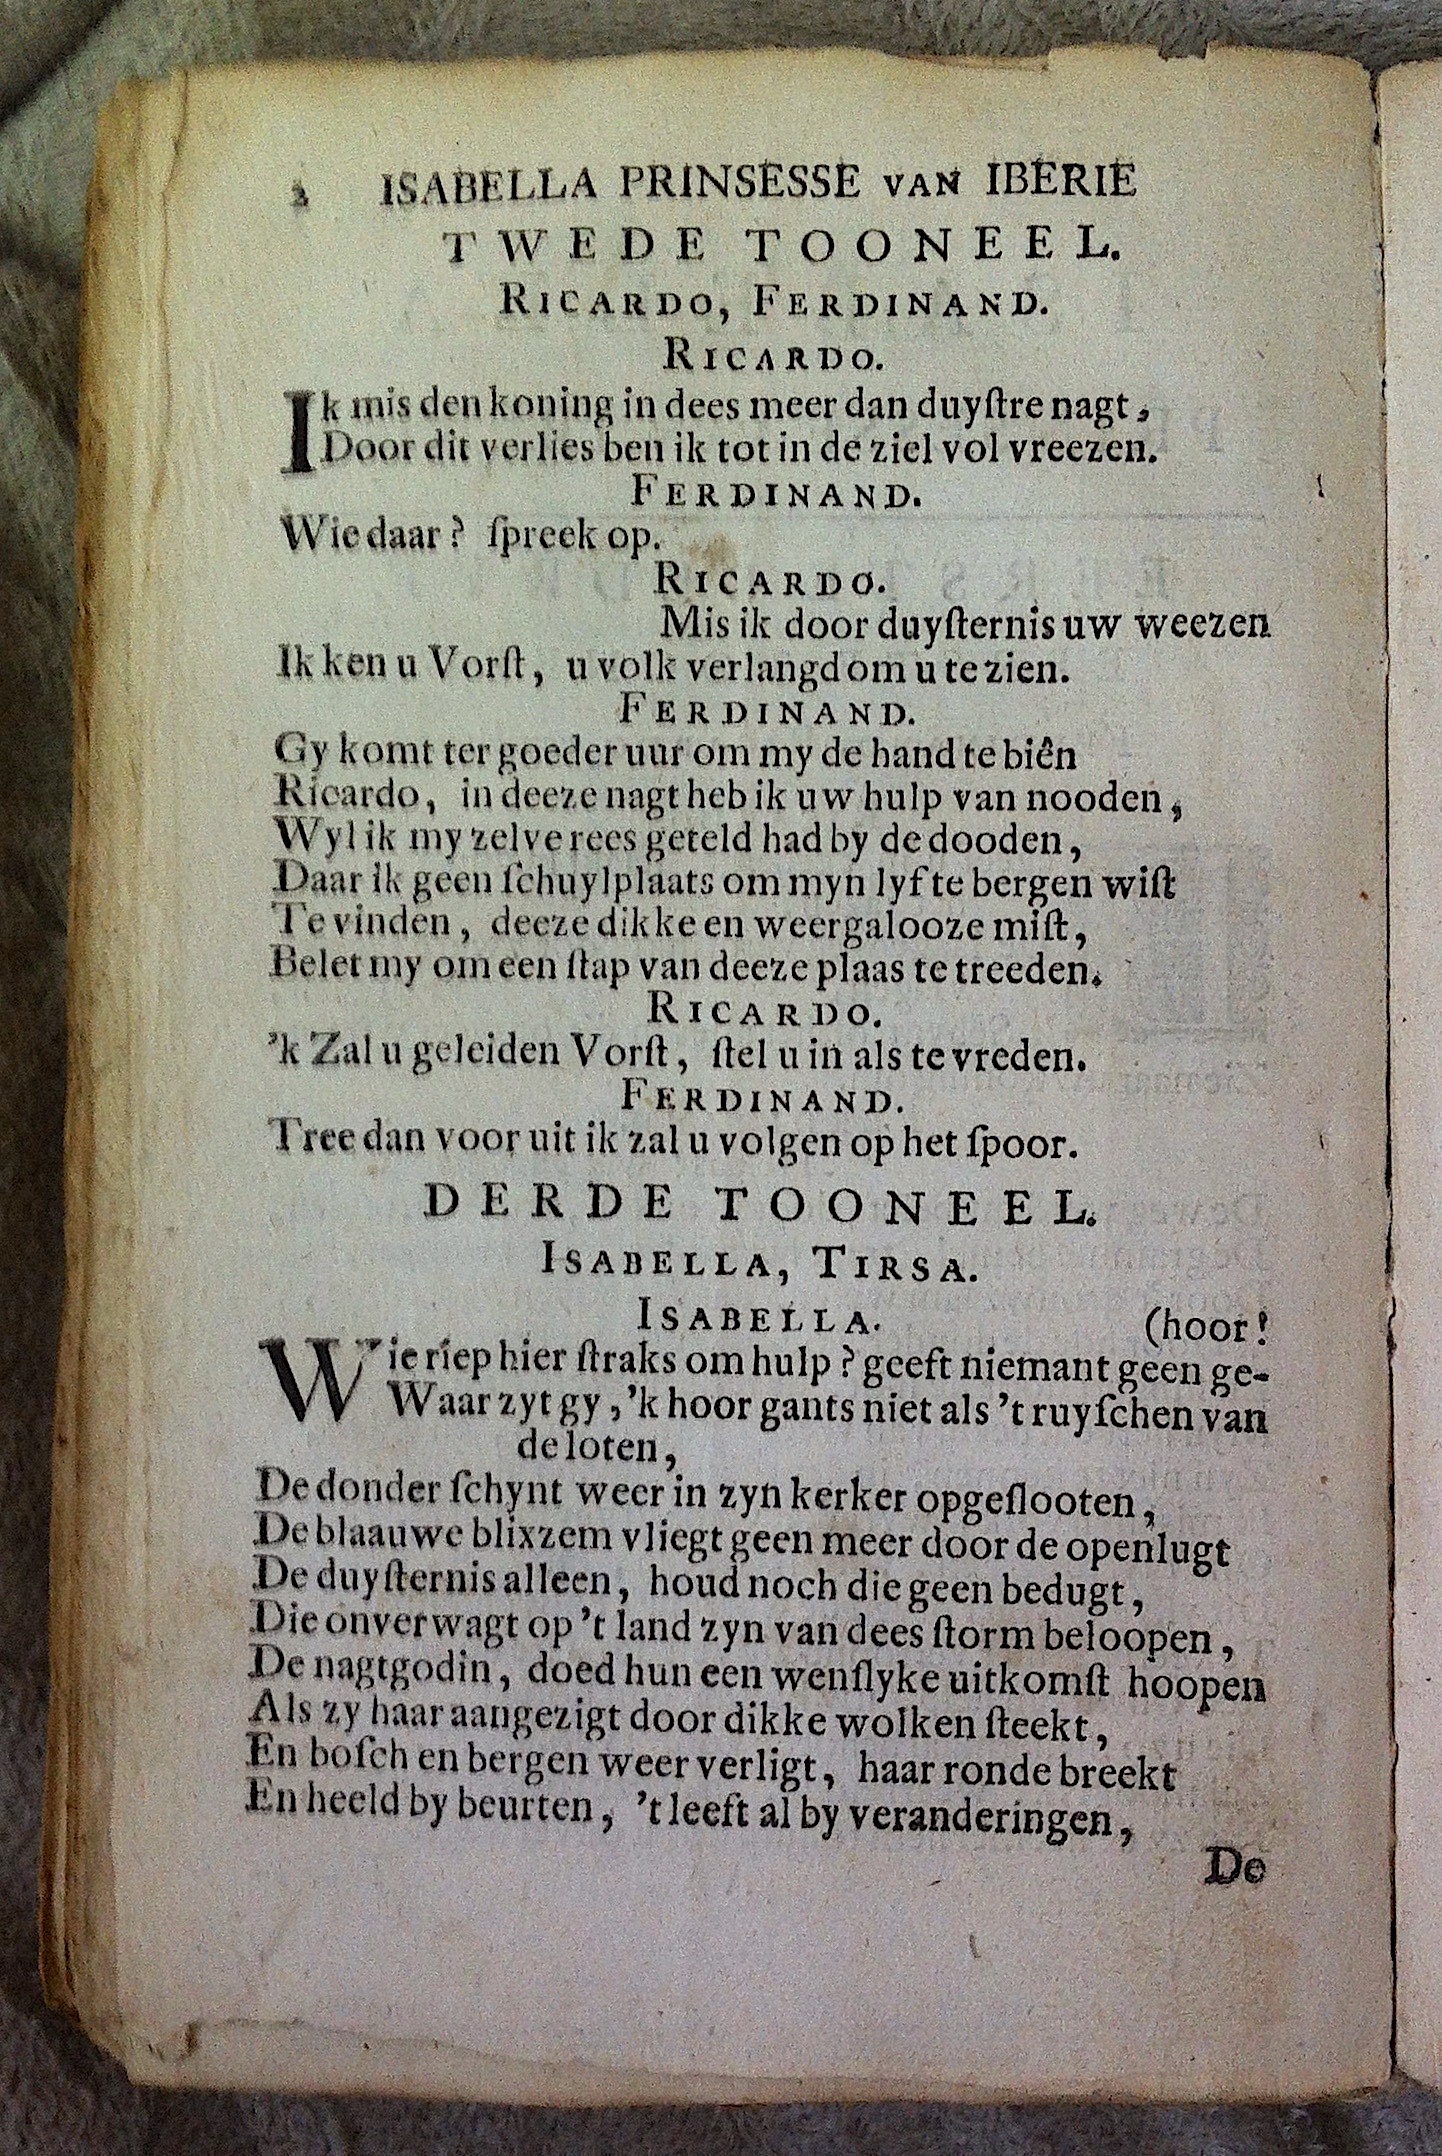 2 ISABELLA PRINSESSE VAN IBERIE
TWEDE TOONEEL.
RICARDO, FERDINAND.
RICARDO.
Ik mis den koning in dees meer dan duyſtre nagt,
Door dit verlies ben ik tot in de ziel vol vreezen.
FERDINAND.
Wie daar? ſpreek op.
RICARDO.
Mis ik door duyſternis uw weezen
Ik ken u Vorſt, u volk verlangd om u te zien.
FERDINAND.
Gy komt ter goeder uur om my de hand te biên
Ricardo, in deeze nagt heb ik uw hulp van nooden,
Wyl ik my zelve rees geteld had by de dooden,
Daar ik geen ſchuylplaats om myn lyf te bergen wiſt
Te vinden, deeze dikke en weergalooze miſt,
Belet my om een ſtap van deeze plaas te treeden.
RICARDO.
'k Zal u geleiden Vorſt, ſtel u in als te vreden.
FERDINAND.
Tree dan voor uit ik zal u volgen op het ſpoor.
DERDE TOONEEL.
ISABELLA, TIRSA.
ISABELLA. (hoor!
Wie riep hier ſtraks om hulp? geeft niemant geen ge-
Waar zyt gy,'k hoor gants niet als 't ruyſchen van
de loten,
De donder ſchynt weer in zyn kerker opgeſlooten,
De blaauwe blixzem vliegt geen meer door de openlugt
De duyſternis alleen, houd noch die geen bedugt,
Die onverwagt op 't land zyn van dees ſtorm beloopen,
De nagtgodin, doed hun een wenſlyke uitkomſt hoopen
Als zy haar aangezigt door dikke wolken ſteekt,
En boſch en bergen weer verligt, haar ronde breekt
En heeld by beurten, 't leeft al by veranderingen,
De